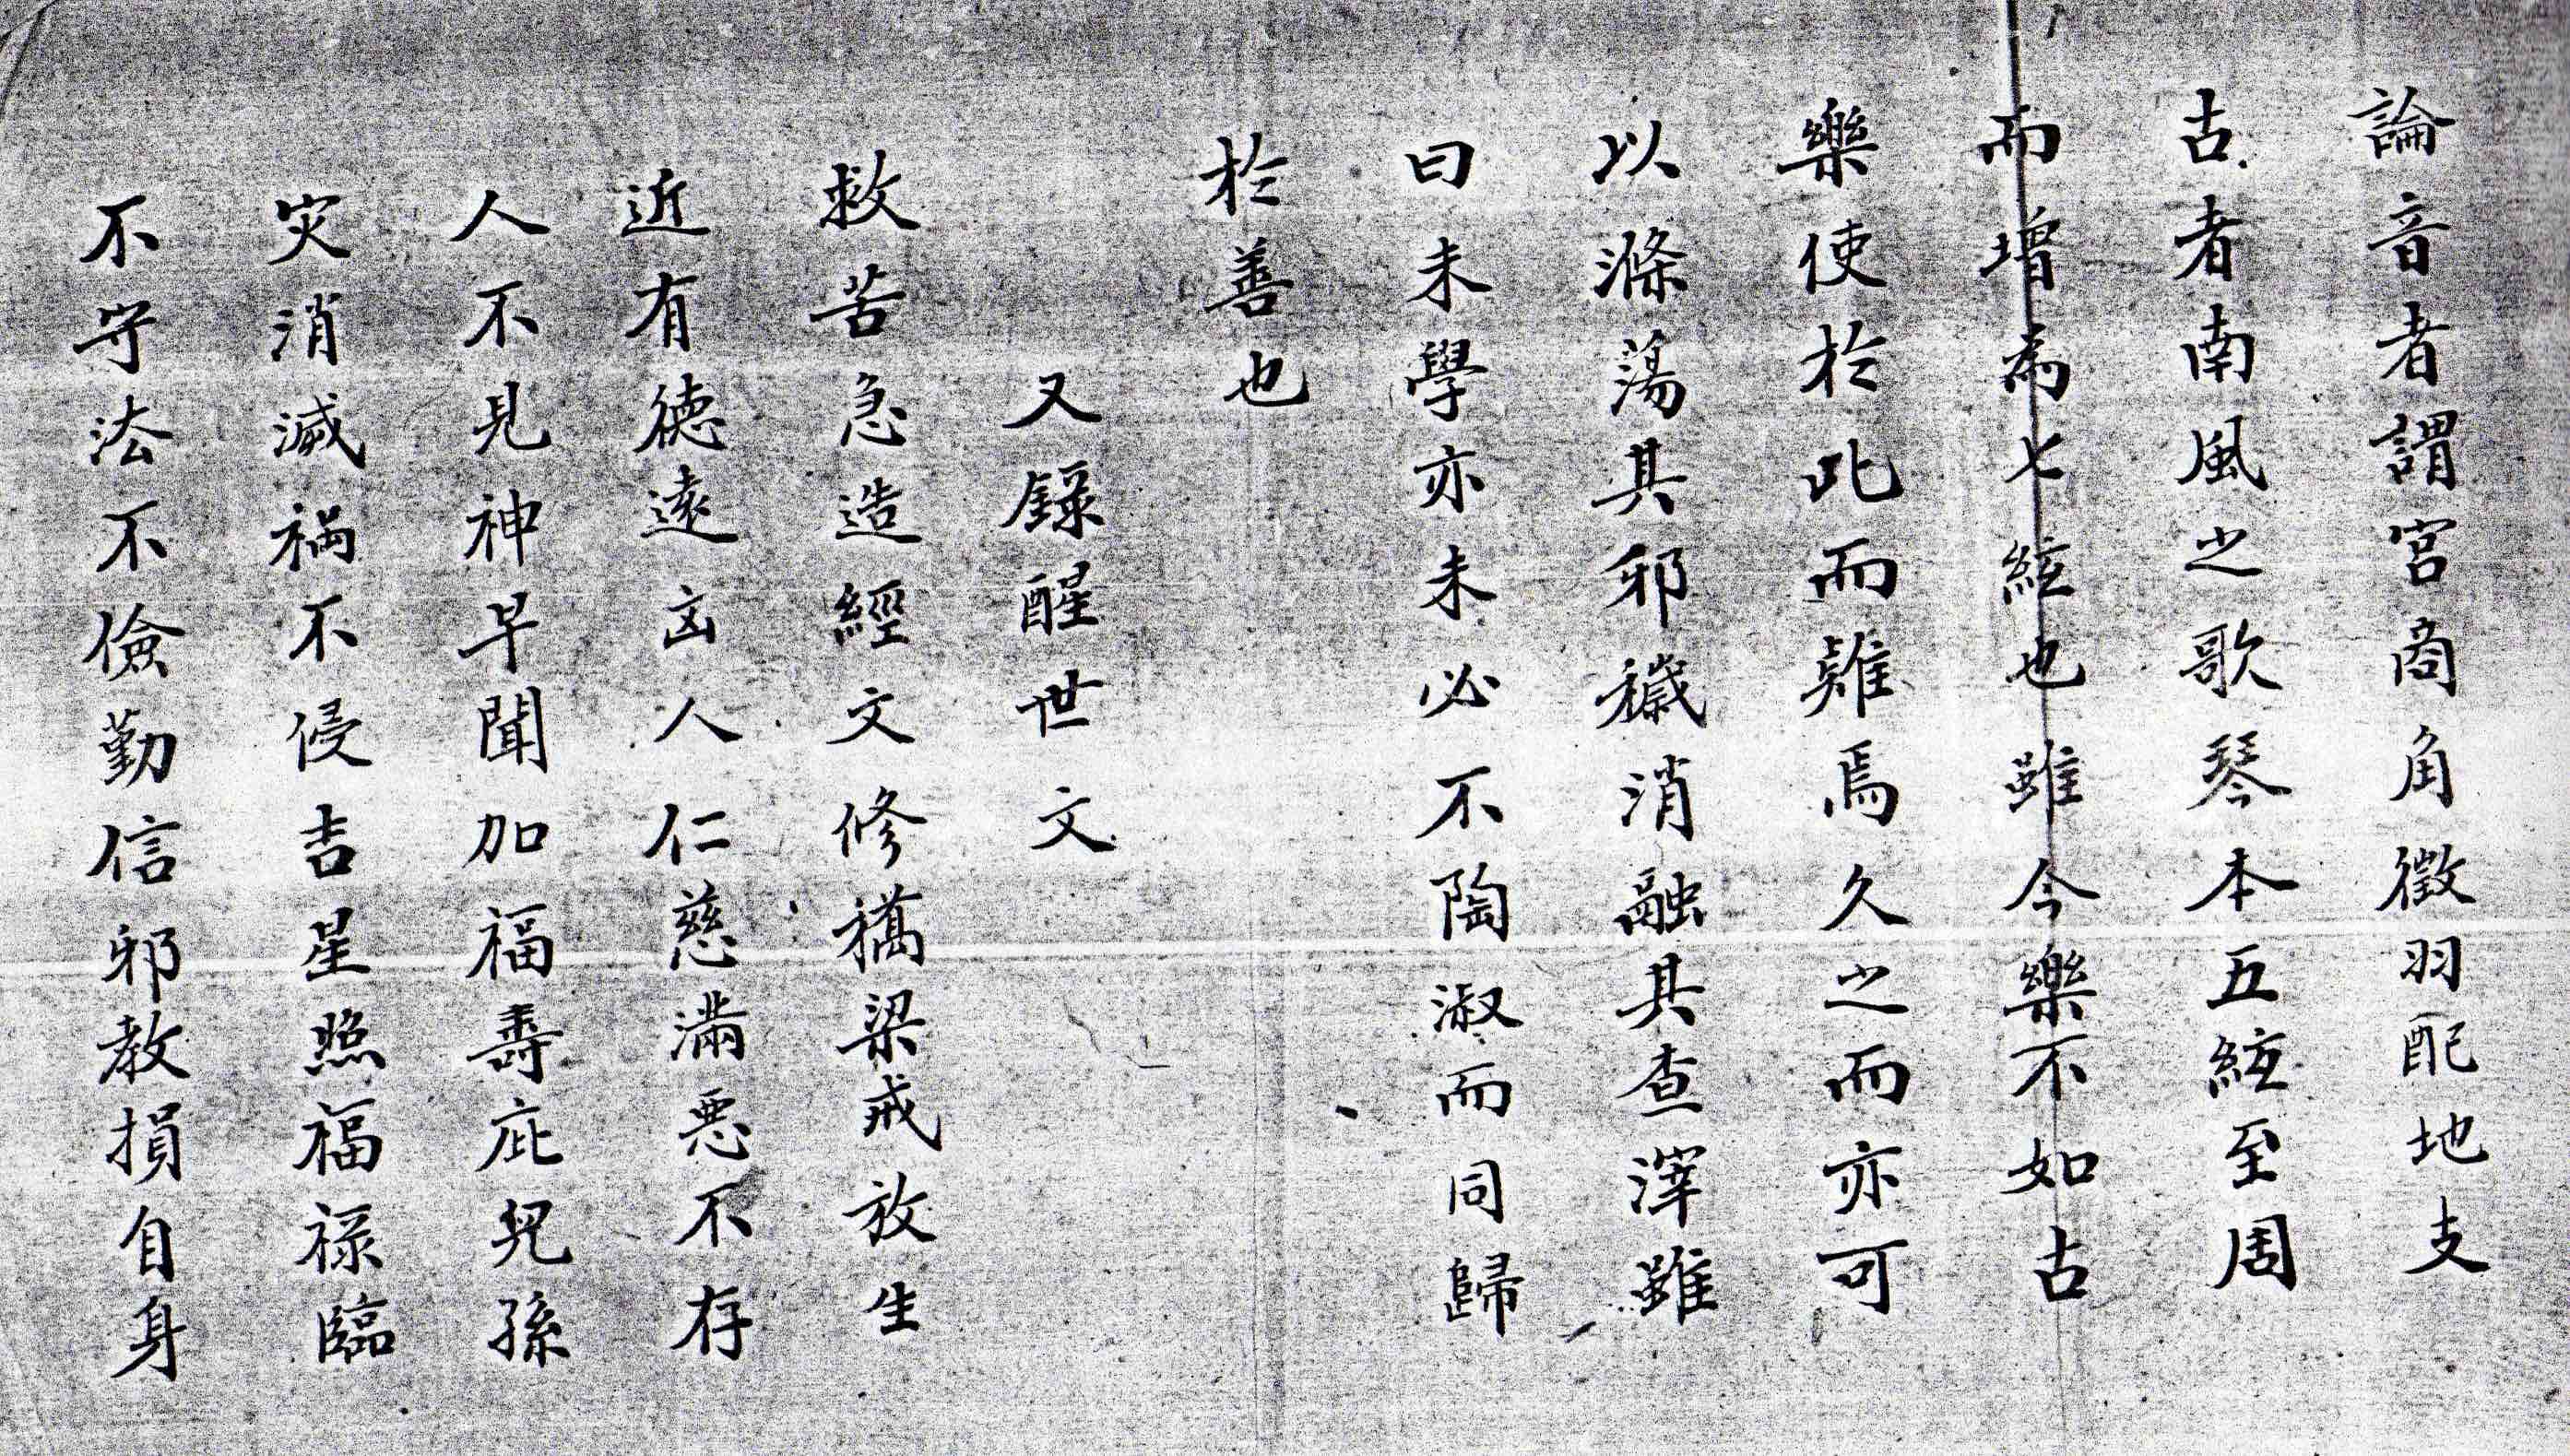 論音者謂宮商角徵羽配地支
古者南風之歌琴本五絃至周
而增為七絃也雖今樂不如古
樂使於此而雖焉久之而亦可
以滌蕩其邪穢消融其查滓雖
曰未學亦未必不陶淑而同歸
於善也
又錄醒世文
救苦急造經文修橋梁戒放生
近有德遠凶人仁慈滿惡不存
人不見神早聞加福壽庇兒孫
灾消滅禍不侵吉星照福祿臨
不守法不儉勤信邪教損自身